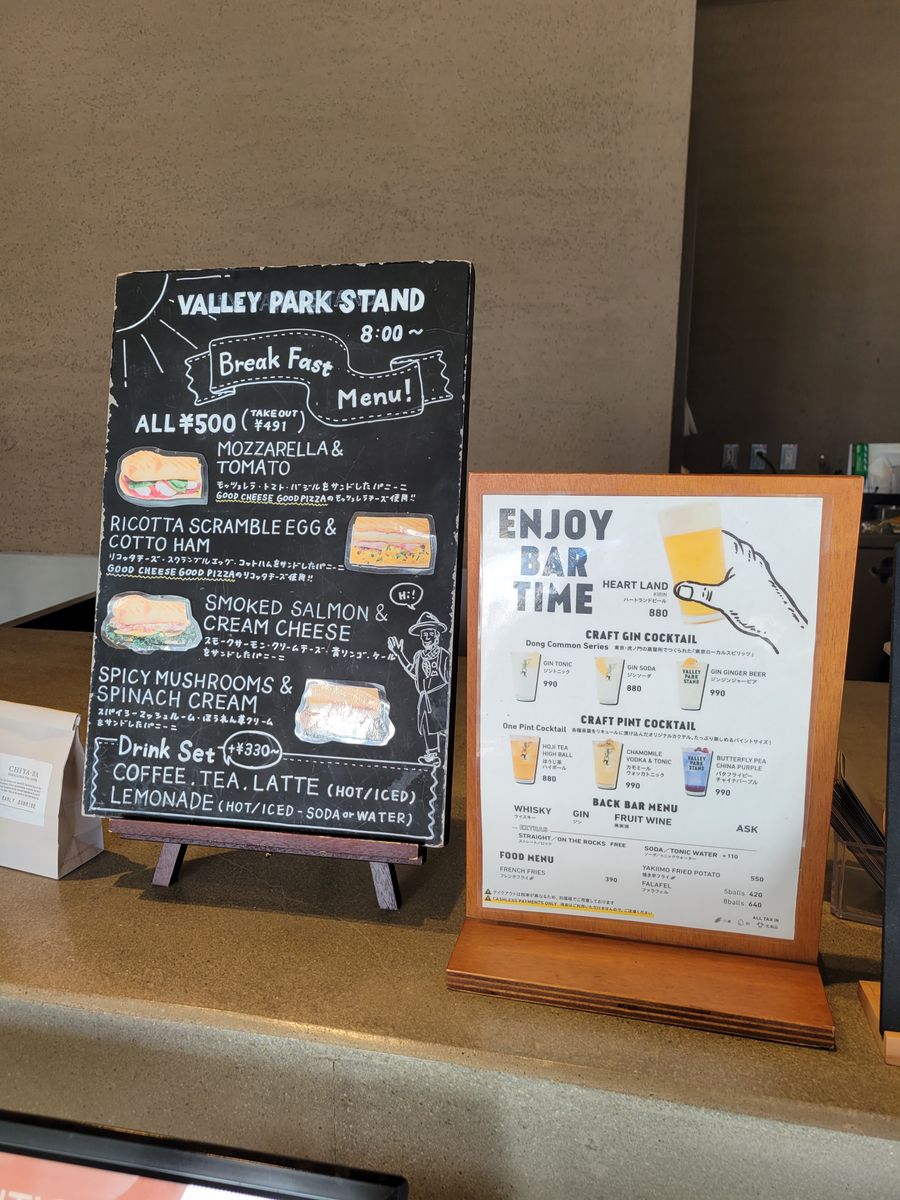 VALLEY PARK STAND
8:00~
Break Fast
Menu!
ALL ¥500 (TAKE OUT ¥491)
MOZZARELLA &
TOMATO
モッツァレラ・トマト・バジルをサンドしたパニーニ
GOOD CHEESE GOOD PIZZAのモッツァレラチーズ使用!!
RICOTTA SCRAMBLE EGG &
COTTO HAM
リコッタチーズ・スクランブルエッグ・コットハムをサンドしたパニーニ
GOOD CHEESE GOOD PIZZAのリコッタチーズ使用!!
Hi!
SMOKED SALMON &
CREAM CHEESE
スモークサーモン・クリームチーズ・青リンゴ・ケール
をサンドしたパニーニ
SPICY MUSHROOMS &
SPINACH CREAM
スパイシーマッシュルーム・ほうれん草クリーム
をサンドしたパニーニ
Drink Set +¥330~
COFFEE.TEA.LATTE (HOT/ICED)
LEMONADE (HOT/ICED-SODA or WATER)
CHIYA-BA
EARLY SUNRISE
ENJOY
BAR
TIME
HEART LAND
KIRIN
ハートランドビール
880
CRAFT GIN COCKTAIL
Dong Common Series 東京・虎ノ門の蒸留所でつくられた「東京ローカルスピリッツ」
GIN TONIC
ジントニック
990
GIN SODA
ジンソーダ
880
VALLEY
PARK
STAND
GIN GINGER BEER
ジンジンジャービア
990
CRAFT PINT COCKTAIL
One Pint Cocktail 各種茶葉をリキュールに漬け込んだオリジナルカクテル。たっぷり楽しめるパイントサイズ!
HOJI TEA
HIGH BALL
ほうじ茶
ハイボール
880
CHAMOMILE
VODKA & TONIC
カモミール
ウォッカトニック
990
BUTTERFLY PEA
CHINA PURPLE
バタフライピー
チャイナパープル
990
BACK BAR MENU
WHISKY
ウイスキー
GIN
ジン
FRUIT WINE
果実酒
ASK
EXTRAS
STRAIGHT/ON THE ROCKS FREE
ストレート/ロック
SODA/TONIC WATER +110
ソーダ/トニックウォーター
FOOD MENU
FRENCH FRIES 390
フレンチフライ
YAKIIMO FRIED POTATO 550
焼き芋フライ
FALAFEL 5balls 420
ファラフェル 8balls 640
テイクアウトは税率が異なるため、別価格でご用意しております
CASHLESS PAYMENTS ONLY
ALL TAX IN